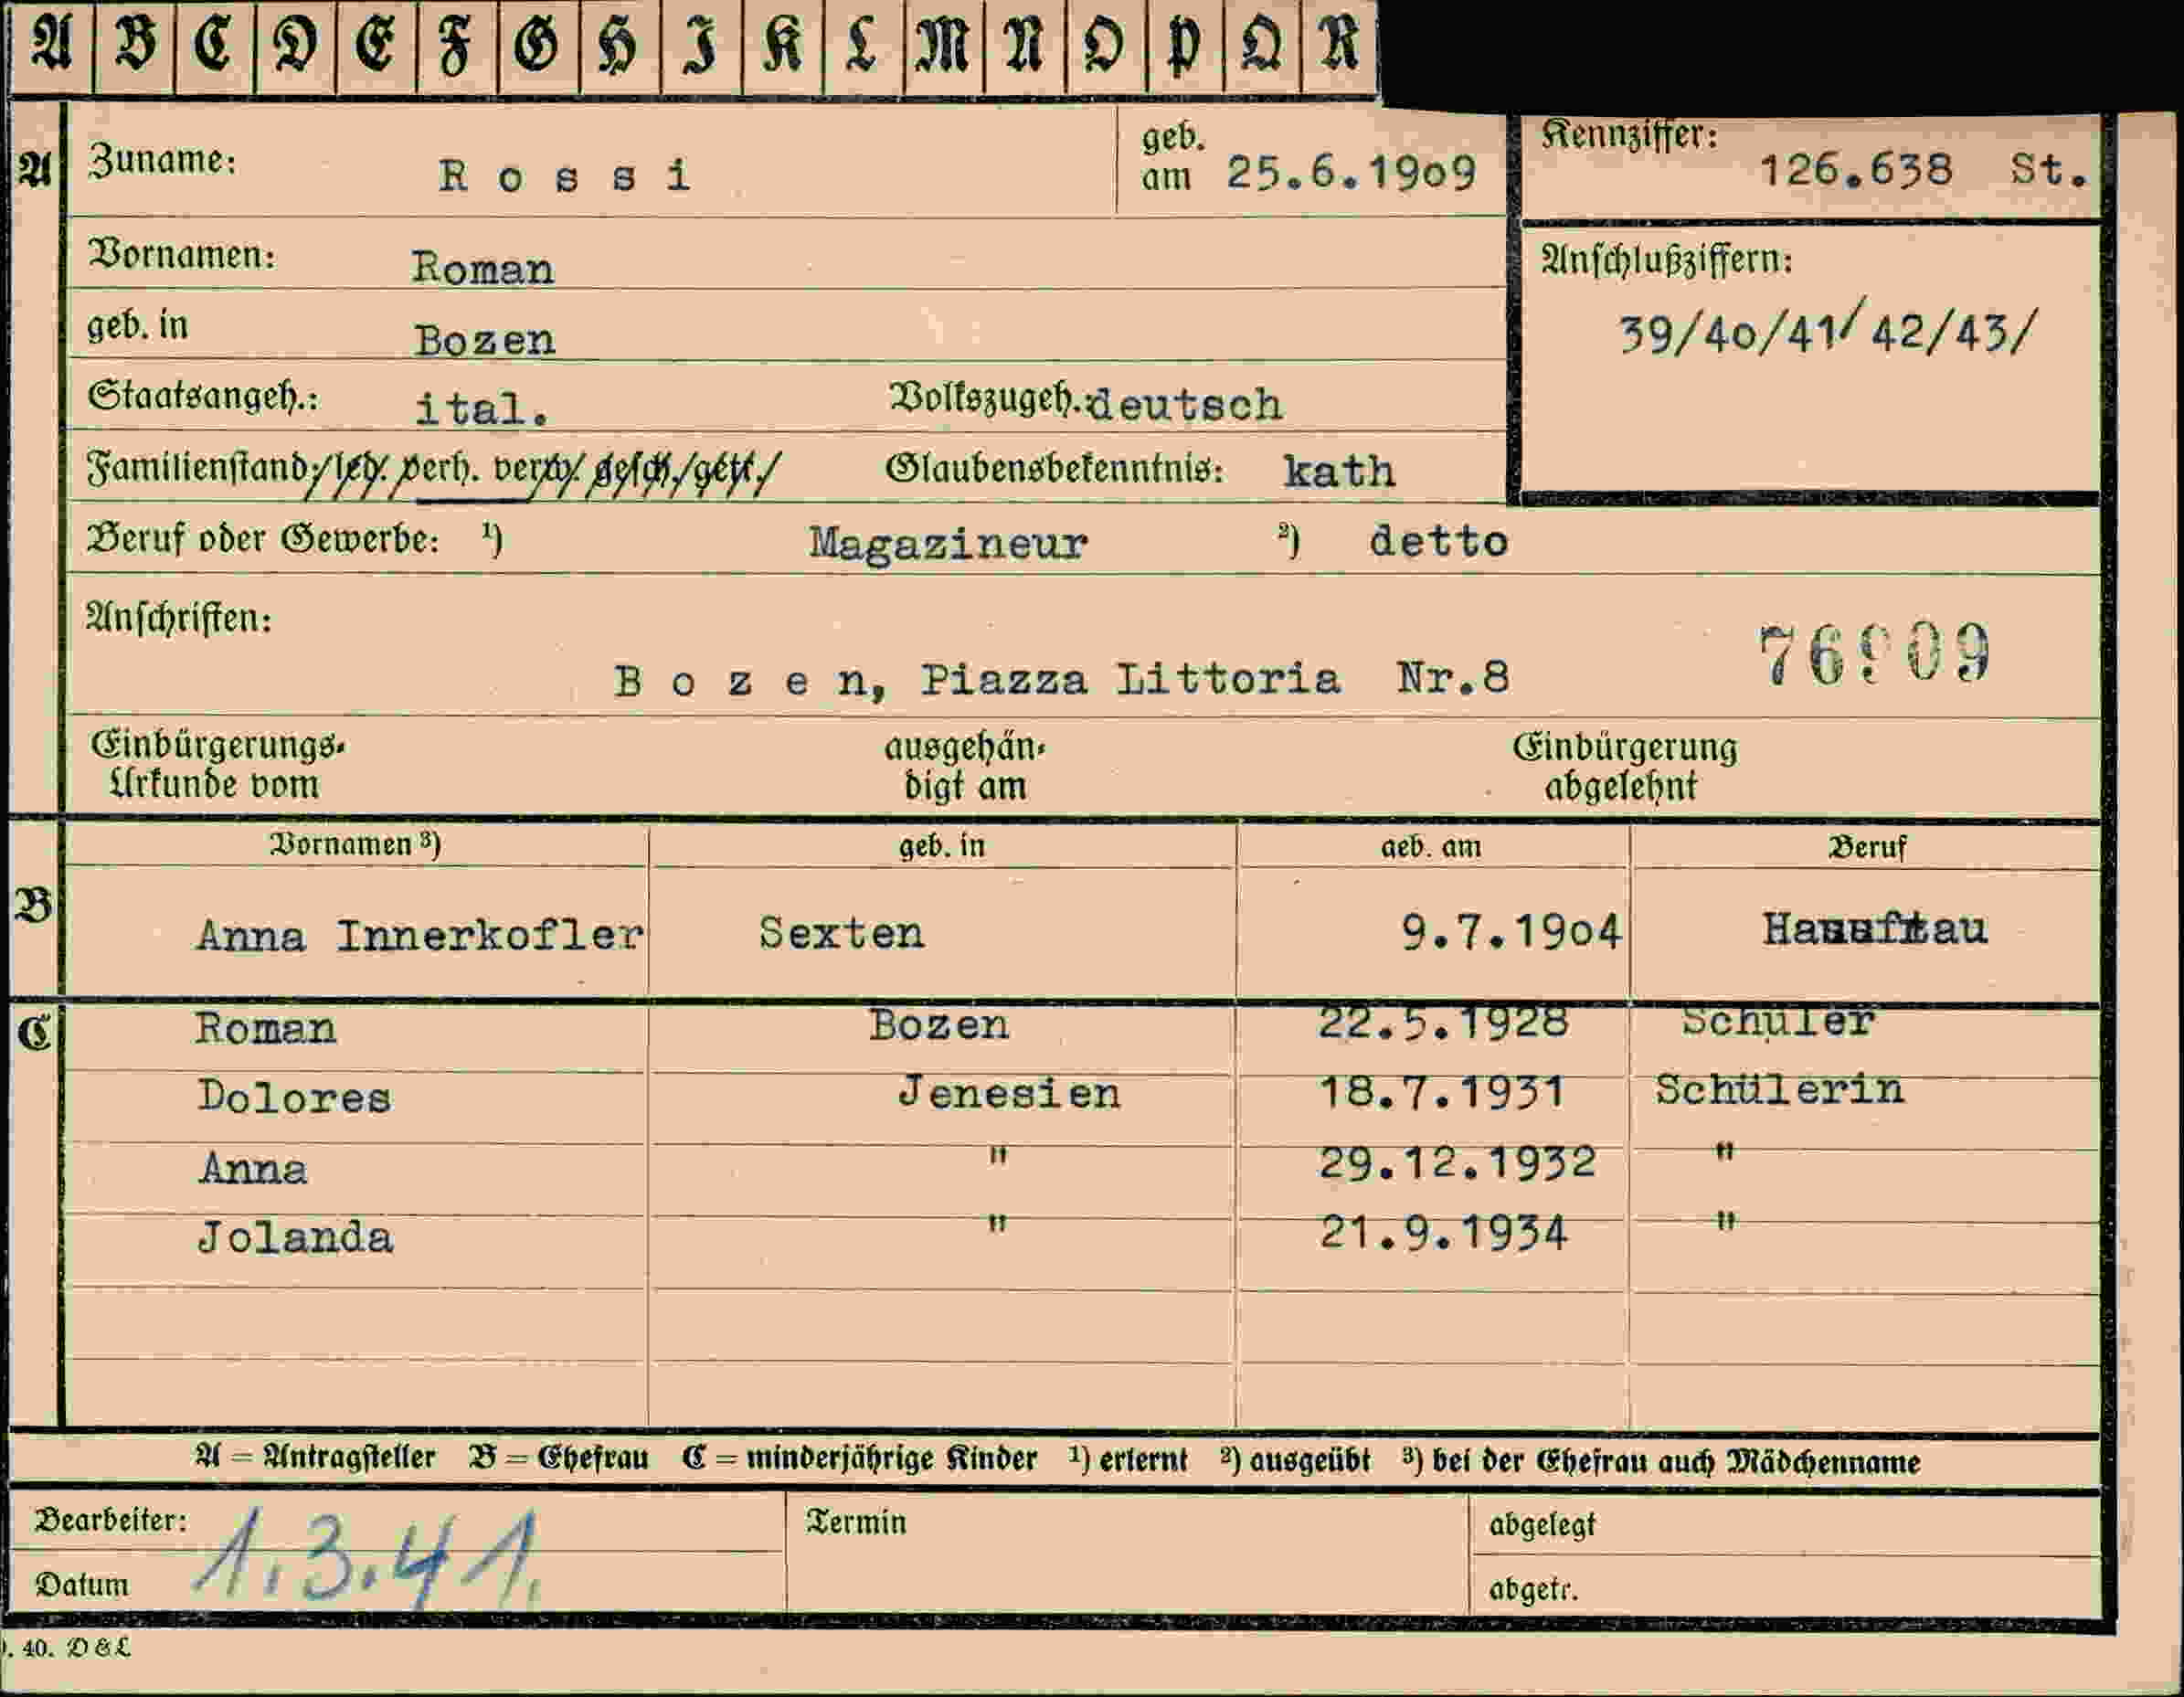 A B C D E F G H I K L M N O P Q R
A Zuname: Rossi geb. am 25.6.1909 Kennziffer: 126.638 St.
Vornamen: Roman Anschlußziffern:
geb. in Bozen 39/40/41/42/43/
Staatsangeh.: ital. Volkszugeh.: deutsch
Familienstand: led. verh. verw. gesch. getr. Glaubensbekenntnis: kath
Beruf oder Gewerbe: 1) Magazineur 2) detto
Anschriften:
Bozen, Piazza Littoria Nr.8
Einbürgerungs-Urkunde vom ausgehändigt am Einbürgerung abgelehnt
Vornamen 3) geb. in geb. am Beruf
B Anna Innerkofler Sexten 9.7.1904 Hausfrau
C Roman Bozen 22.5.1928 Schüler
Dolores Jenesien 18.7.1931 Schülerin
Anna " 29.12.1932 "
Jolanda " 21.9.1934 "
A = Antragsteller B = Ehefrau C = minderjährige Kinder 1) erlernt 2) ausgeübt 3) bei der Ehefrau auch Mädchenname
Bearbeiter: Termin abgelegt
Datum 1.3.41. abgetr.
. 40. D & L